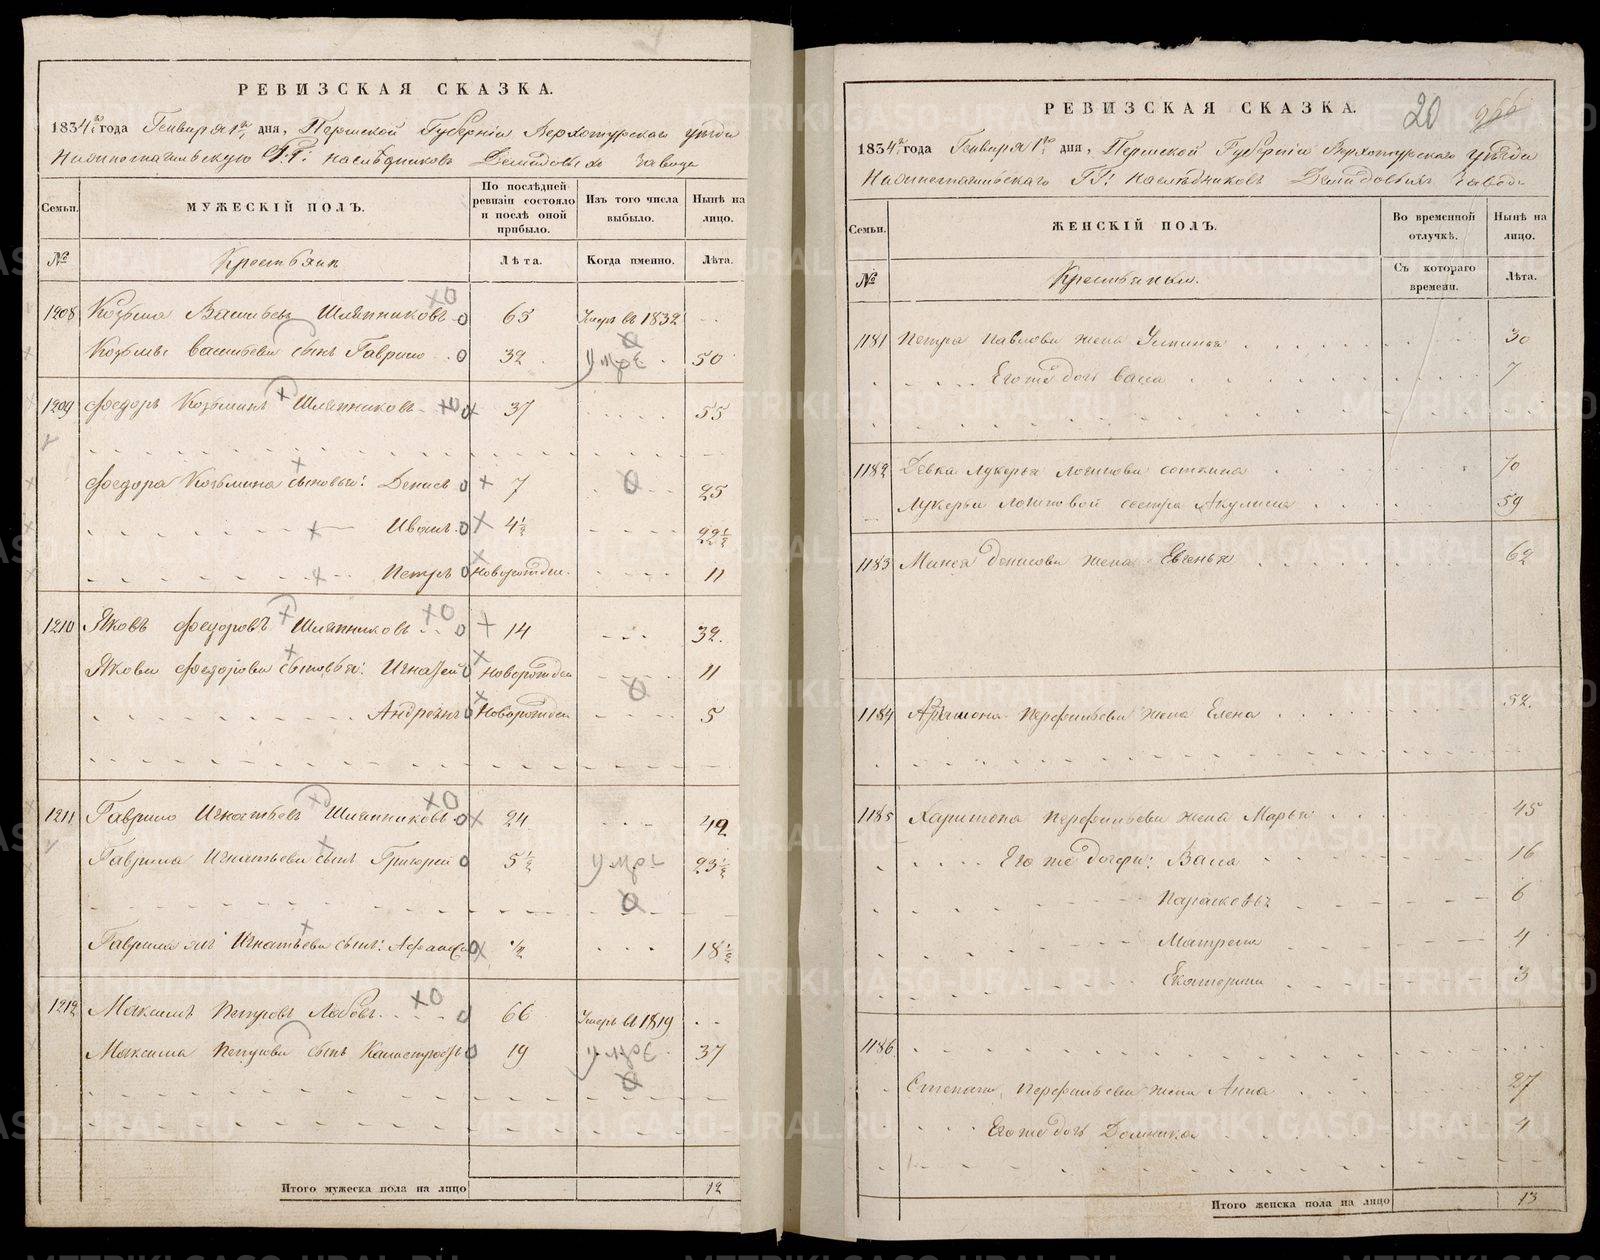 РЕВИЗСКАЯ СКАЗКА.
1834 года Генваря 1 дня, Пермской Губерніи Верхотурскаго уѣзда
Нижнетагильскаго Г.Г: наслѣдниковъ Демидовыхъ завода
Семьи. МУЖЕСКІЙ ПОЛЪ. По послѣдней ревизіи состояло и послѣ оной прибыло. Изъ того числа выбыло. Нынѣ на лицо.
№ Крестьянъ Лѣта. Когда именно. Лѣта.
1208 Козьма Васильевъ Шляпниковъ 65 Умеръ въ 1832
Козьмы Васильева сынъ Гаврило 32 50
1209 Федоръ Козьминъ Шляпниковъ 37 55
Федора Козьмина сыновья: Денисъ 7 25
Иванъ 4½ 22½
Петръ Новорожден. 11
1210 Яковъ Федоровъ Шляпниковъ 14 32
Якова Федорова сыновья: Игнатей Новорожден 11
Андреянъ Новорожден 5
1211 Гаврило Игнатьевъ Шляпниковъ 24 42
Гаврила Игнатьева сынъ Григорей 5½ 23½
Гаврила Игнатьева сынъ: ½ 18½
1212 Максимъ Петровъ 66 Умеръ въ 1819
Максима Петрова сынъ 19 37
Итого мужеска пола на лицо 12
РЕВИЗСКАЯ СКАЗКА. 20
1834 года Генваря 1 дня, Пермской Губерніи Верхотурскаго уѣзда
Нижнетагильскаго ГГ: наслѣдниковъ Демидовыхъ завода
Семьи. ЖЕНСКІЙ ПОЛЪ. Во временной отлучкѣ. Нынѣ на лицо.
№ Крестьянки. Съ котораго времени. Лѣта.
1181 Петра Павлова жена Устинья 30
Его же дочь Васса 7
1182 Девка Лукерья Логинова 70
Лукерьи Логиновой сестра Акулина 59
1183 Денисова жена Евгенья 62
1184 Перфильева жена Елена 52
1185 Харитона Перфильева жена Марья 45
Его же дочери: Васса 16
Парасковья 6
Матрена 4
Екатерина 3
1186
Степана Перфильева жена Анна 27
Его же дочь Домника 4
Итого женска пола на лицо 13
METRIKI.GASO-URAL.RU